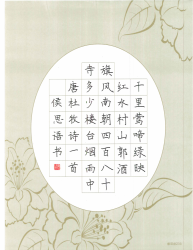 千里莺啼绿映
红水村山郭酒
旗风南朝四百八十
寺多少楼台烟雨中
唐杜牧诗一首
侯思语书